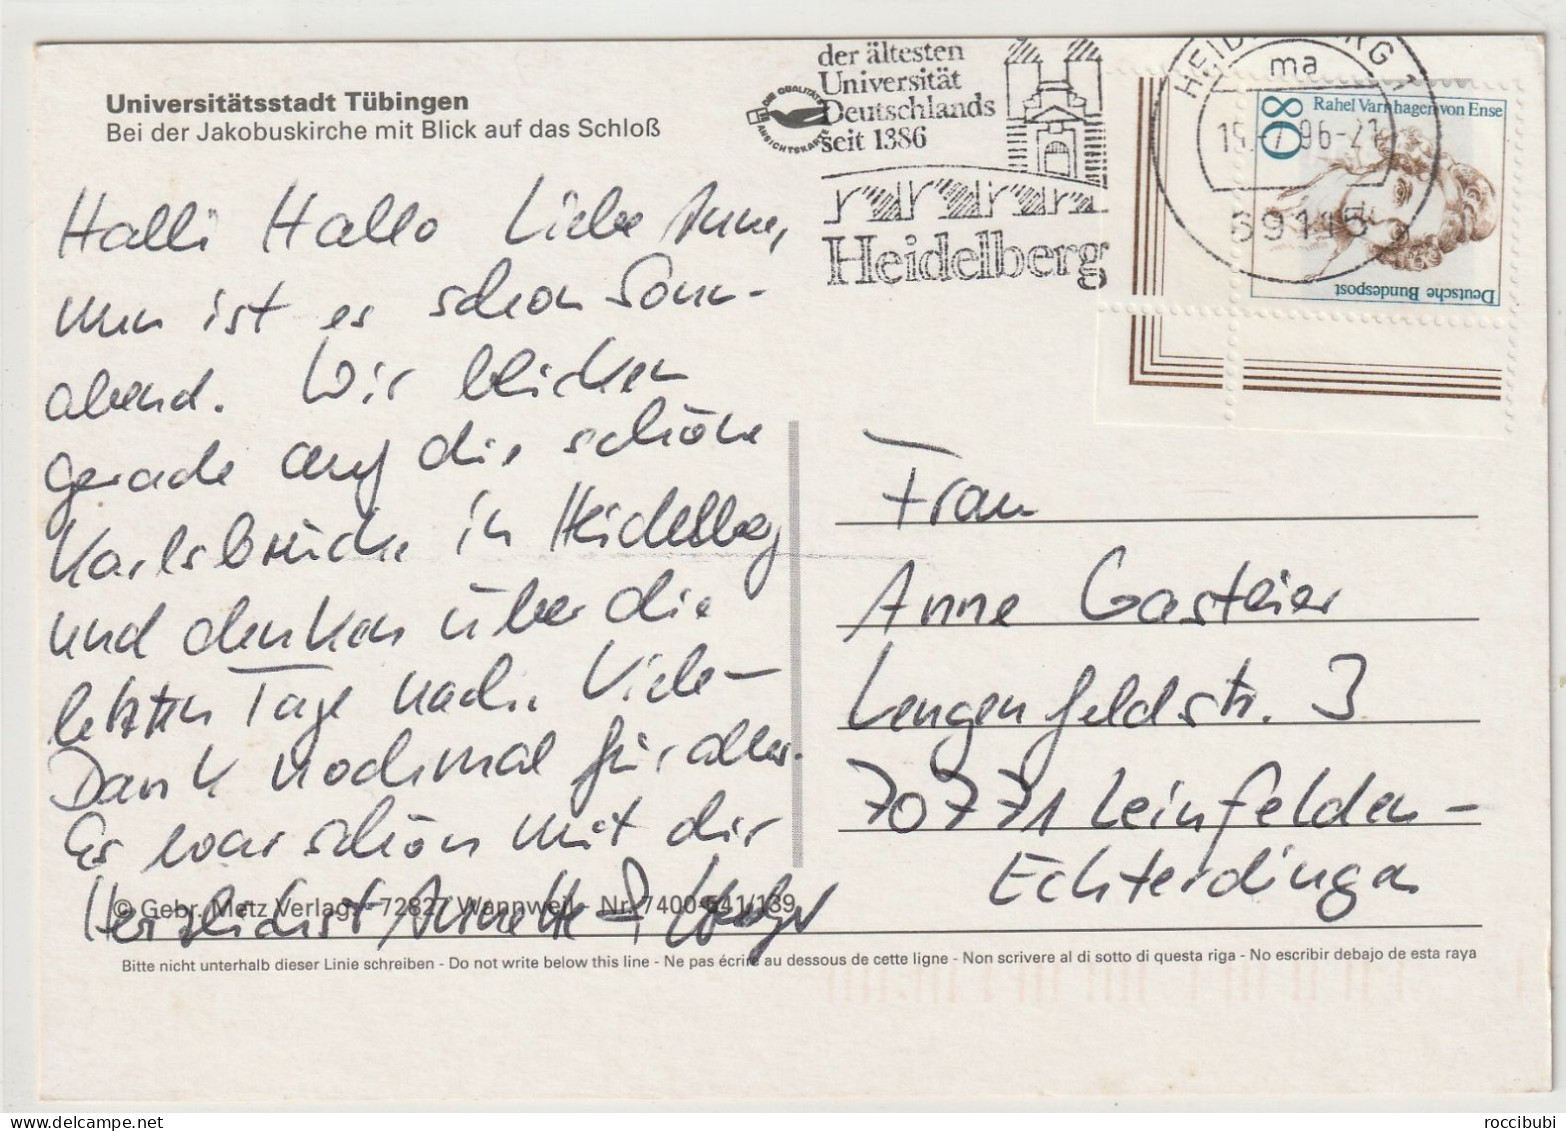 Universitätsstadt Tübingen
Bei der Jakobuskirche mit Blick auf das Schloß
DIE QUALITÄTS
ANSICHTSKARTE
der ältesten
Universität
Deutschlands
seit 1386
Heidelberg
HEIDELBERG 1
ma
-7.96-21
69115
80
Rahel Varnhagen von Ense
Deutsche Bundespost
Halli Hallo Liebe Anne,
nun ist es schon Sonn-
abend. Wir blicken
gerade auf die schöne
Karlsbrücke in Heidelberg
und denken über die
letzten Tage nach. Viele-
Dank nochmal für alles.
Es war schön mit dir
Herzlichst Annette +
Frau
Anne Gasteier
Lengenfeldstr. 3
70771 Leinfelden-
Echterdingen
© Gebr. Metz Verlag - 72827 Wannweil - Nr. 7400-541/139
Bitte nicht unterhalb dieser Linie schreiben - Do not write below this line - Ne pas écrire au dessous de cette ligne - Non scrivere al di sotto di questa riga - No escribir debajo de esta raya
roccibubi